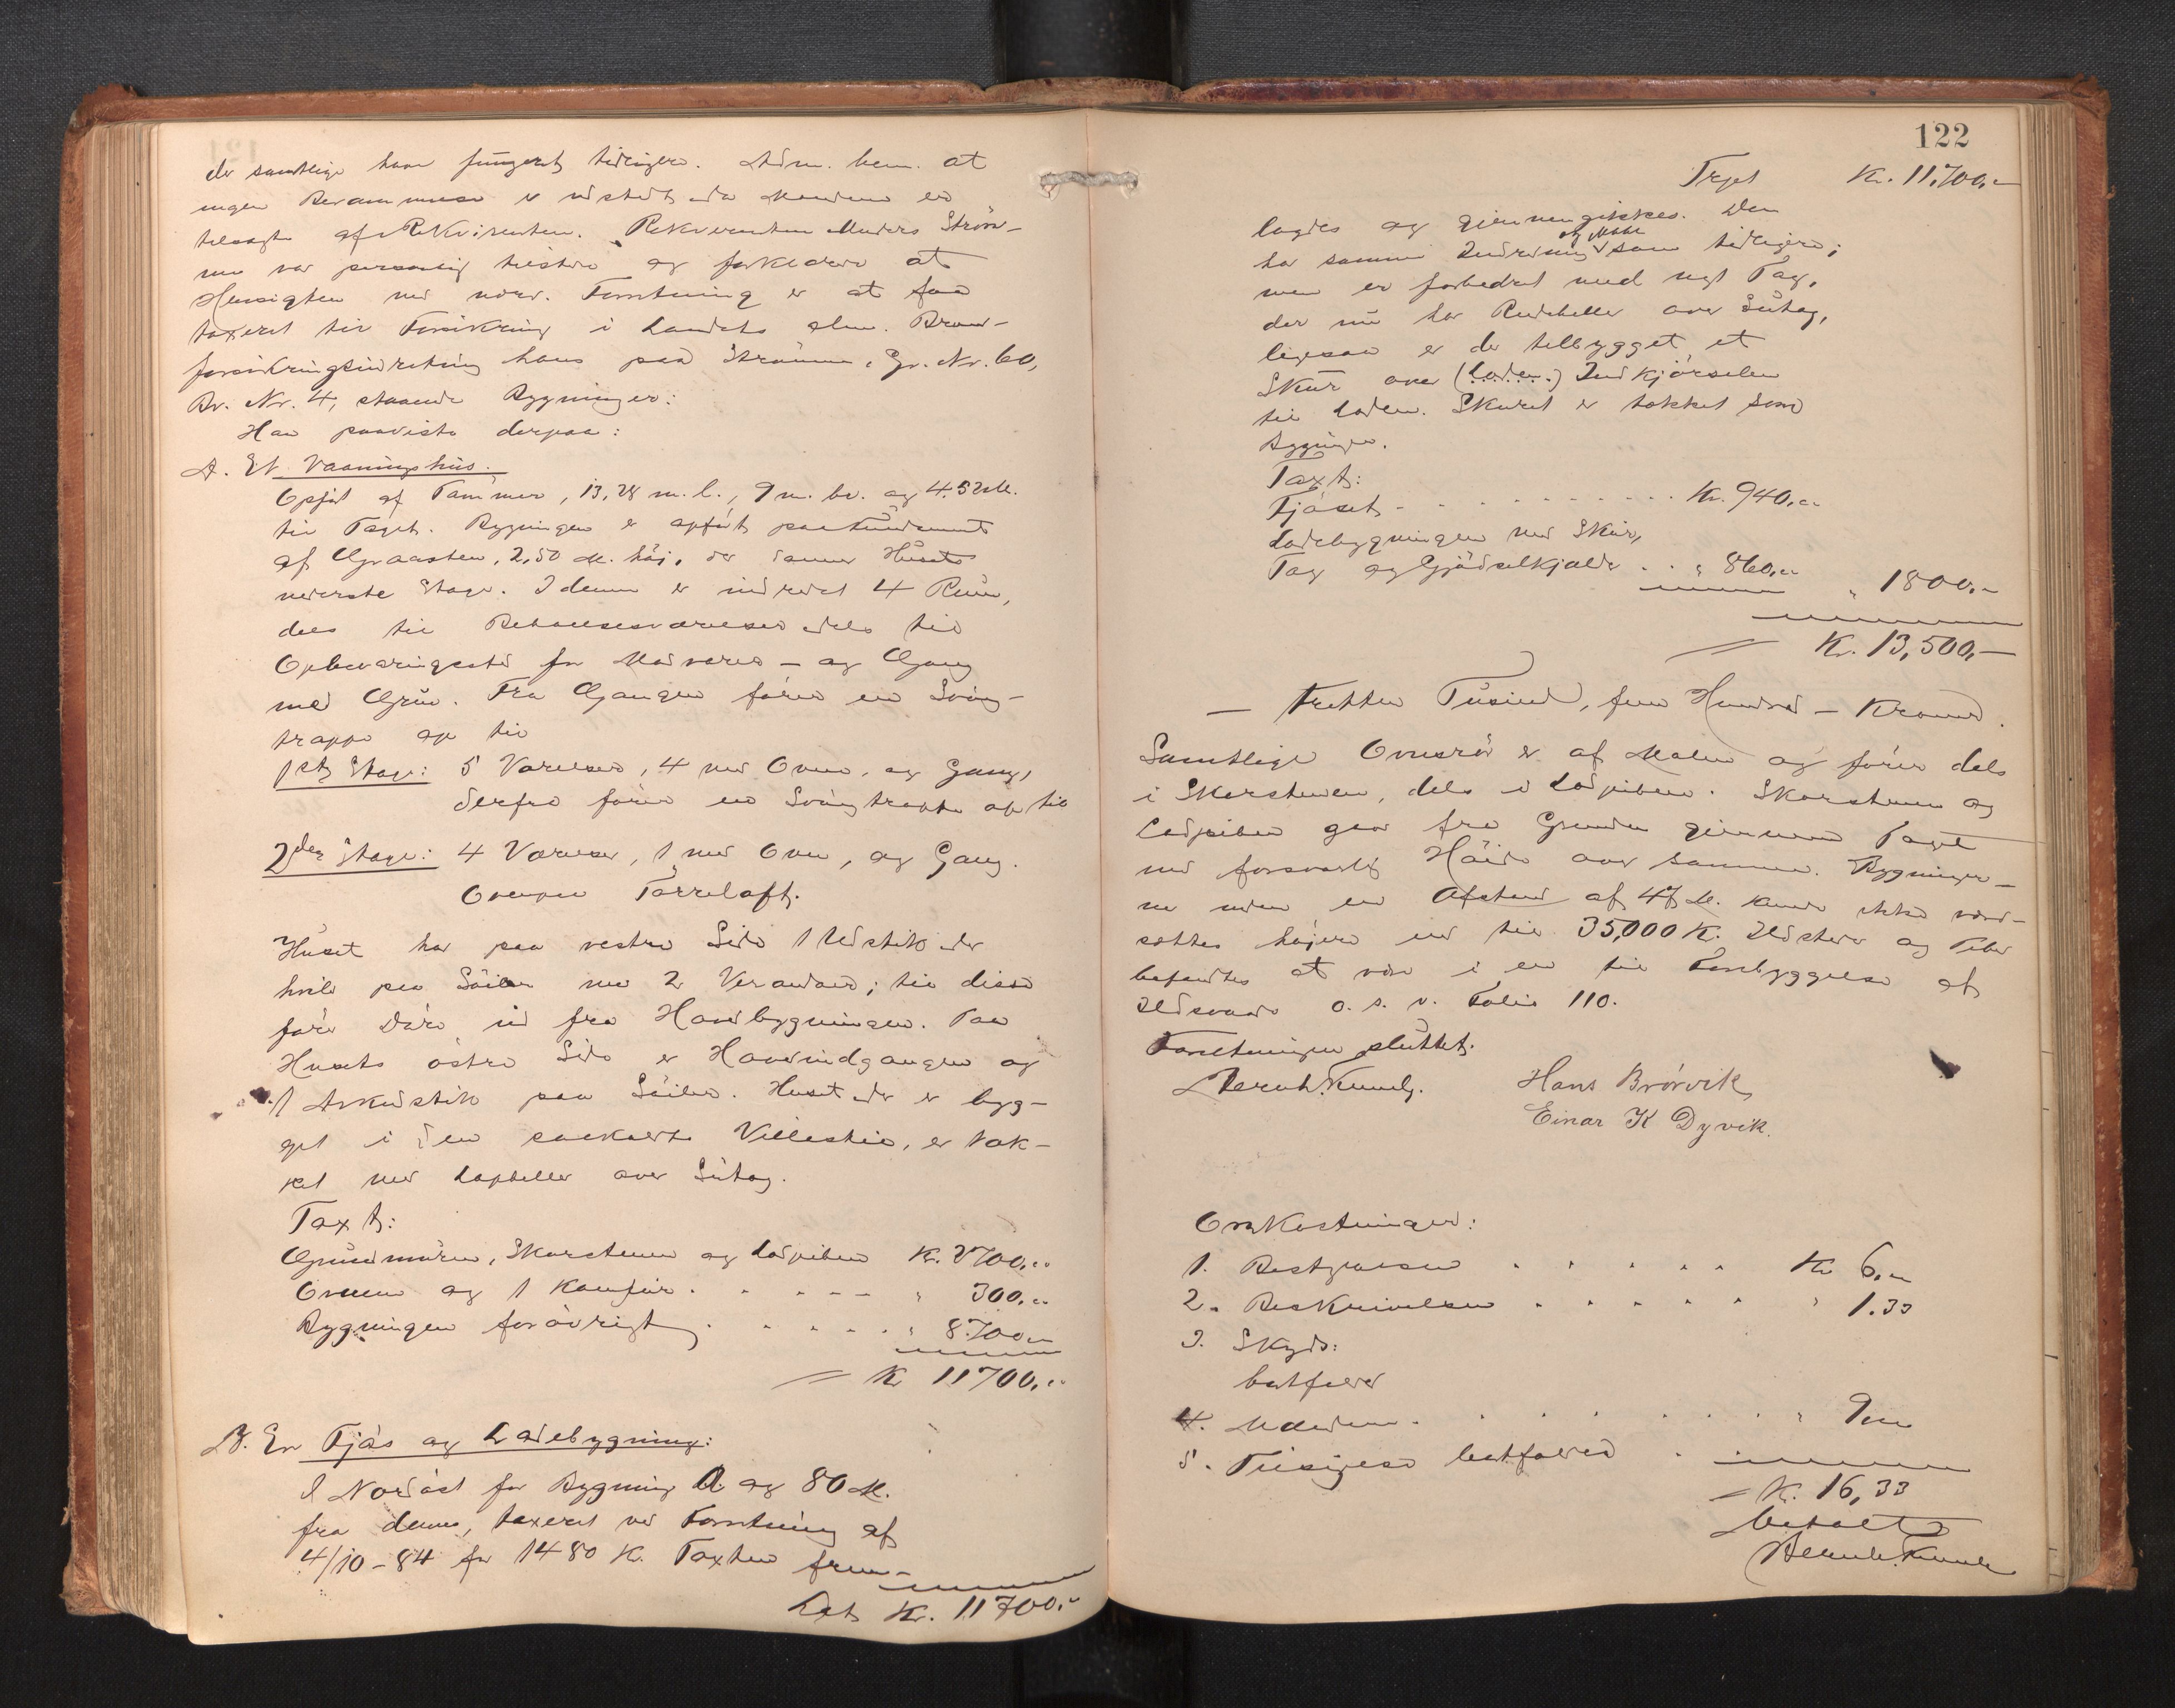 der samtlige har fungeret tidligere. Adm. bem. at
ingen Berammelse er udstedt da Mændene er
tilsagte af Rekvirenten. Rekvirenten Anders Ström-
me var personlig tilstede og forklarede at
Hensigten med nærv. Forretning er at faa
taxeret til Forsikring i Landets alm. Brand-
forsikringsindretning hans paa Strømme, Gr. Nr. 60,
Br. Nr. 4, staaende Bygninger:
Han paaviste derpaa:
A. Et Vaaningshus.
Opført af Tømmer, 13,28 m. l., 9 m. br. og 4.52 M.
til Taget. Bygningen er opført paa Fundament
af Graasten, 2,50 M. høj, der danner Husets
nederste Etage. I denne er indredet 4 Rum,
dels til Beboelsesværelser dels til
Opbevaringssted for Madvarer – og Gang
med Grue. Fra Gangen fører en Sving-
trappe op til
1ste Etage: 5 Værelser, 4 med Ovne, og Gang,
derfra fører en Svingtrappe op til
2den Etage: 4 Værelser, 1 med Ovn, og Gang.
Ovenpaa Tørreloft.
Huset har paa vestre Side 1 Udstik der
hviler paa Söiler med 2 Verandaer; til disse
fører Døre ud fra Hovedbygningen. Paa
Husets østre Side er Hovedindgangen og
1 Arkudstik paa Söiler. Huset der er byg-
get i den saakaldte Villastil, er tæk-
ket med Lapheller over Sutag.
Taxt:
Grundmuren, Skorstenen og Ladpiben Kr. 2700,"
Ovnene og 1 Komfur . . . . . " 300,"
Bygningen forøvrigt . . . . . " 8.700,"
= Kr 11700,"
B. En Fjös og Ladebygning:
I Nordöst for Bygning A og 80 M.
fra denne, taxeret ved Forretning af
4/10-84 for 1480 K. Taxten frem-
Lat. Kr. 11700,"
122
Trspt Kr. 11,700,"
lagdes og gjennemgikkes. Den
og Maal
har samme Indredning som tidligere;
men er forbedret med nyt Tag,
der nu har Rudeheller over Sutag,
ligesaa er der tilbygget et
Skur over (Laden.) Indkjørselen
til Laden. Skuret er tækket som
Bygningen.
Taxt:
Fjöset - . . . . . . . . . Kr. 940,"
Ladebygningen med Skur,
Tag og Gjödselkjælder . . " 860,"
" 1800,"
= Kr. 13,500,–
– Tretten Tusind, fem Hundred – Kroner.
Samtlige Ovnsrör er af Malm og fører dels
i Skorstenen, dels i Ladpiben. Skorstenen og
Ladpiben gaar fra Grunden gjennem Taget
med forsvarlig Höide over samme. Bygninger-
ne inden en Afstand af 47 M. kunde ikke værd-
sættes højere end til 35,000 K. Ildsteder og Piber
befandtes at være i en til Forebyggelse af
Ildsvaade o. s. v. Folio 110.
Forretningen sluttet.
Hans Brörvik
Einar K Dyvik.
Omkostninger:
1. Bestyrelsen . . . . . Kr 6,"
2. Beskrivelsen . . . . . " 1.33
3. Skyds:
bortfalder
4. Mændene . . . . . . . . " 9,"
5. Tilsigelse bortfalder . .
= Kr. 16,33
betalt